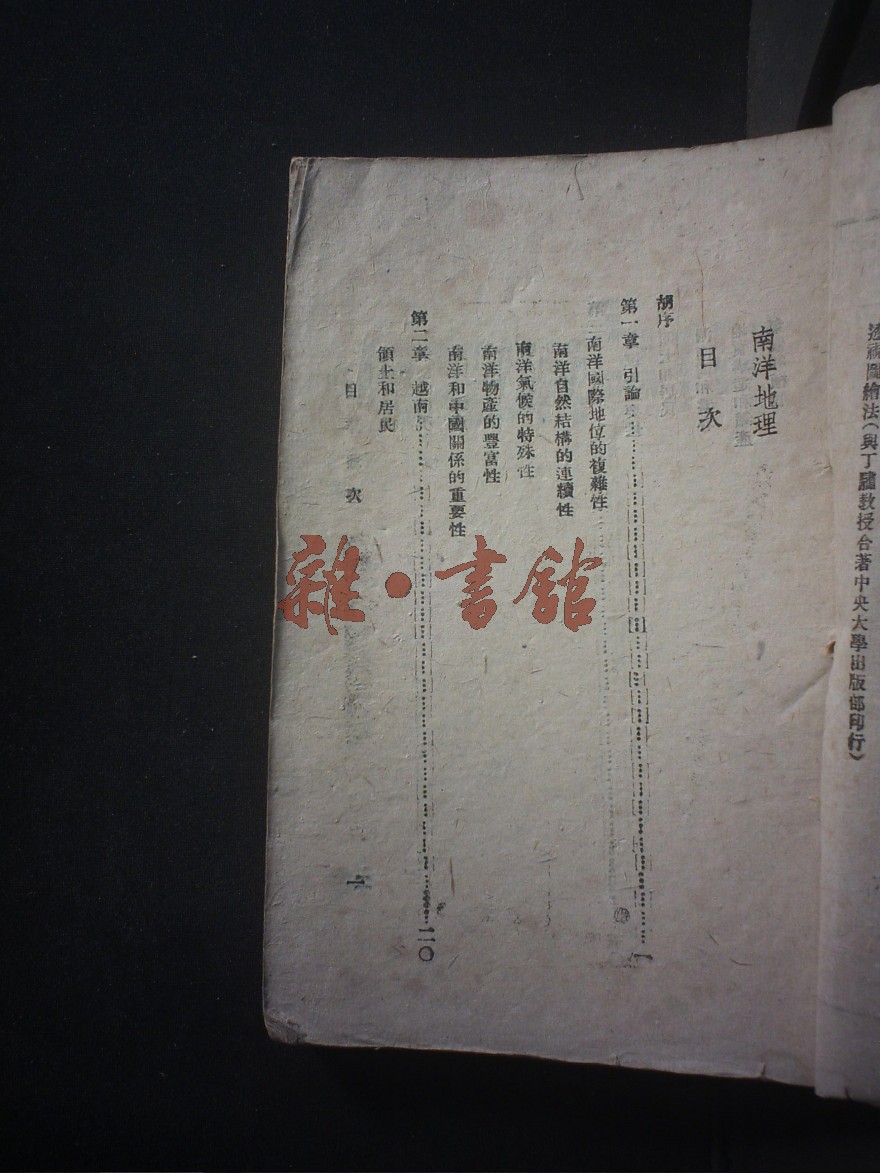 透視圖繪法(與丁驌教授合著中央大學出版部印行)
南洋地理
目次
胡序
第一章 引論
南洋國際地位的複雜性
南洋自然結構的連續性
南洋氣候的特殊性
南洋物產的豐富性
南洋和中國關係的重要性
第二章 越南……二〇
領土和居民
目次 一
雜·書館